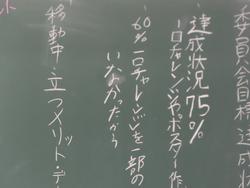 委員会目標達成状
達成状況75%
一口チャレンジやポスター作
60%一口チャレンジを一部の
いなかったから
移動中・立つメリット・デ